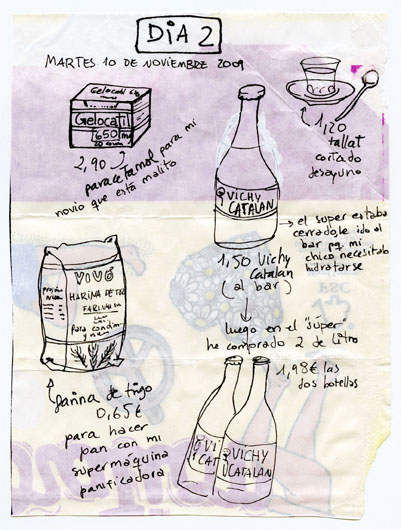 DÍA 2
MARTES 10 DE NOVIEMBRE 2009
Gelocatil
Gelocatil
650 mg
2,90
paracetamol para mi
novio que está malito
1,20
tallat
cortado
desayuno
VICHY
CATALAN
→ el super estaba
cerrado, he ido al
bar pq. mi
chico necesitaba
hidratarse
1,50 Vichy
Catalan
(al bar)
luego en el "súper"
he comprado 2 de litro
1,98€ las
dos botellas
VIVÓ
HARINA DE TRIGO
FARINHA
para
harina de trigo
0,65€
para hacer
pan con mi
supermáquina
panificadora
VI
CAT
VICHY
CATALAN